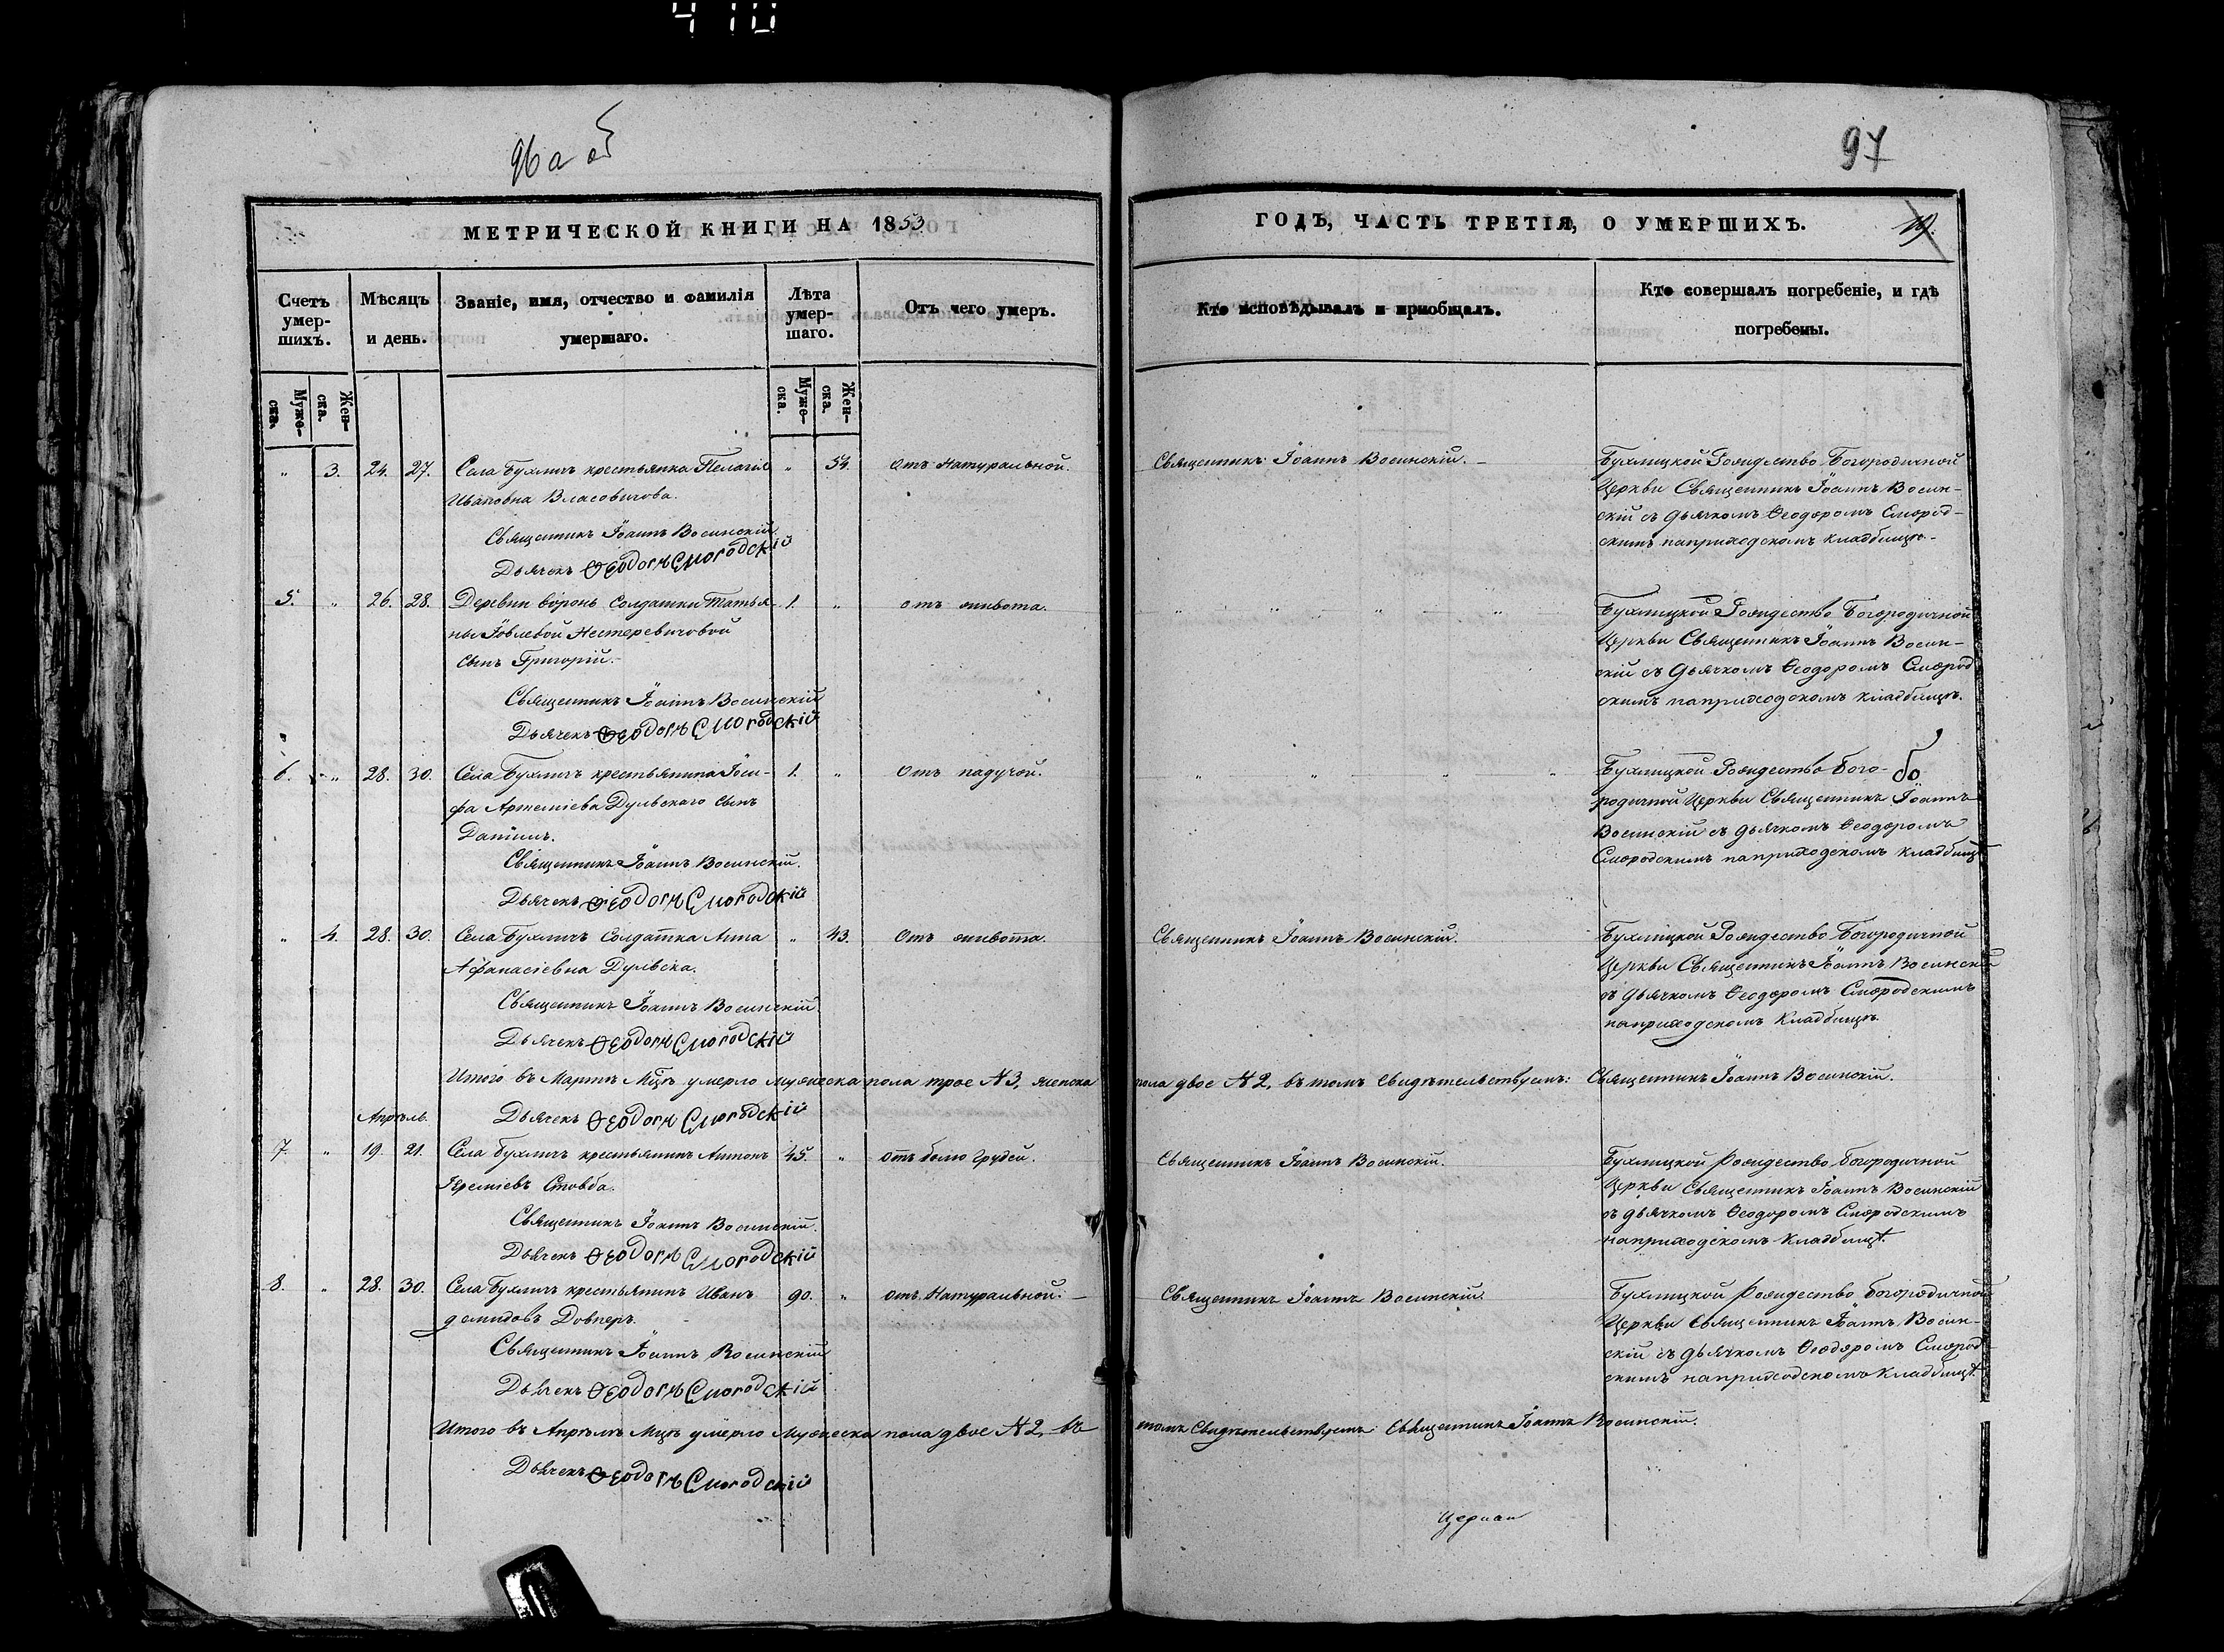 410
96а об
97
МЕТРИЧЕСКОЙ КНИГИ НА 1853
ГОДЪ, ЧАСТЬ ТРЕТІЯ, О УМЕРШИХЪ.
19.
Счетъ умер-шихъ.
Мѣсяцъ и день.
Званіе, имя, отчество и фамилія умершаго.
Лѣта умер-шаго.
Отъ чего умеръ.
Кто исповѣдывалъ и пріобщалъ.
Кто совершалъ погребеніе, и гдѣ погребены.
Муже-ска.
Жен-ска.
Муже-ска.
Жен-ска.
" 3. 24. 27. Села Бухличъ крестьянка Пелагія " 54. Отъ Натуральной.
Ивановна Власовичова.
Священникъ Іоаннъ Восинскій
Дьячекъ Ѳеодоръ Смородскій
Священникъ Іоаннъ Восинскій.
Бухлицкой Рождество Богородичной
Церкви Священникъ Іоаннъ Восин-
скій съ дьячкомъ Ѳеодоромъ Смород-
скимъ наприходскомъ кладбищѣ.
5. " 26. 28. Деревни Воронь Солдатки Татья- 1. " отъ живота.
ны Іовлевой Нестеревичовой
сынъ Григорій.
Священникъ Іоаннъ Восинскій
Дьячекъ Ѳеодоръ Смородскій
" " " "
Бухлицкой Рождество Богородичной
Церкви Священникъ Іоаннъ Восин-
скій съ дьячкомъ Ѳеодоромъ Смород
скимъ наприходскомъ кладбищѣ.
6. " 28. 30. Села Бухличъ крестьянина Іоси- 1. " Отъ падучой.
фа Артеміева Дульскаго сынъ
Даніилъ.
Священникъ Іоаннъ Восинскій.
Дьячекъ Ѳеодоръ Смородскій
" " " "
Бухлицкой Рождество Бого-
родичной Церкви Священникъ Іоаннъ
Восинскій съ дьячкомъ Ѳеодоромъ
Смородскимъ наприходскомъ кладбищѣ
" 4. 28. 30. Села Бухличъ Солдатка Анна " 43. Отъ живота.
Афанасіевна Дульска.
Священникъ Іоаннъ Восинскій.
Дьячекъ Ѳеодоръ Смородскій
Священникъ Іоаннъ Восинскій.
Бухлицкой Рождество Богородичной
Церкви Священникъ Іоаннъ Восинскій
съ дьячкомъ Ѳеодоромъ Смородскимъ
наприходскомъ Кладбищѣ.
Итого въ Мартѣ Мцѣ умерло мужеска пола трое №3, женска пола двое №2, въ томъ Свидѣтельствуемъ: Священникъ Іоаннъ Восинскій.
Дьячекъ Ѳеодоръ Смородскій
Апрѣль.
7. " 19. 21. Села Бухличъ крестьянинъ Антонъ 45. " отъ болю Грудей.
Еремѣевъ Стовба.
Священникъ Іоаннъ Восинскій.
Дьячекъ Ѳеодоръ Смородскій
Священникъ Іоаннъ Восинскій.
Бухлицкой Рождество Богородичной
Церкви Священникъ Іоаннъ Восинскій
съ дьячкомъ Ѳеодоромъ Смородскимъ
наприходскомъ Кладбищѣ.
8. " 28. 30. Села Бухличъ крестьянинъ Иванъ 90. " отъ Натуральной.
демидовъ Довнеръ.
Священникъ Іоаннъ Восинскій
Дьячекъ Ѳеодоръ Смородскій
Священникъ Іоаннъ Восинскій.
Бухлицкой Рождество Богородичной
Церкви Священникъ Іоаннъ Восин-
скій съ дьячкомъ Ѳеодоромъ Смород
скимъ наприходскомъ Кладбищѣ.
Итого въ Апрѣлѣ Мцѣ умерло Мужеска пола двое №2, въ томъ Свидѣтельствуемъ: Священникъ Іоаннъ Восинскій.
Дьячекъ Ѳеодоръ Смородскій